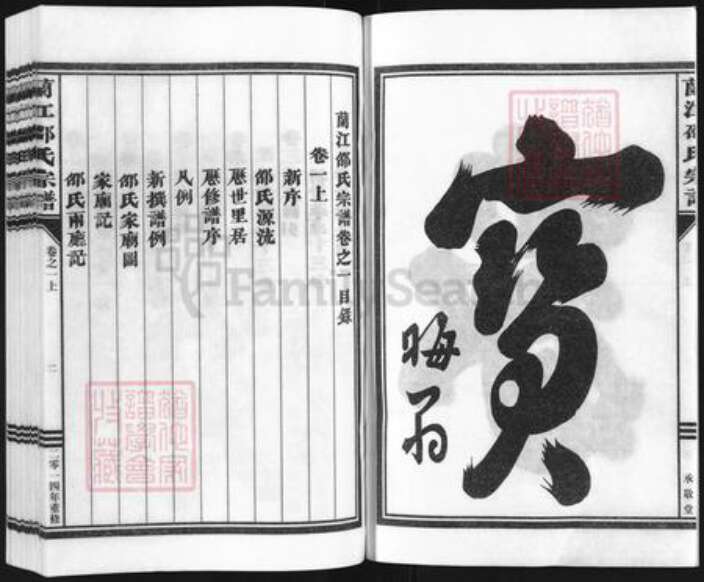 寶
晦翁
蘭江邵氏宗譜
承敬堂
蘭江邵氏宗譜卷之一目錄
卷一上
新序
邵氏源流
歷世里居
歷修譜序
凡例
新撰譜例
邵氏家廟圖
家廟記
邵氏兩廳記
蘭江邵氏宗譜
卷之一上
二
二零一四年重修
FamilySearch